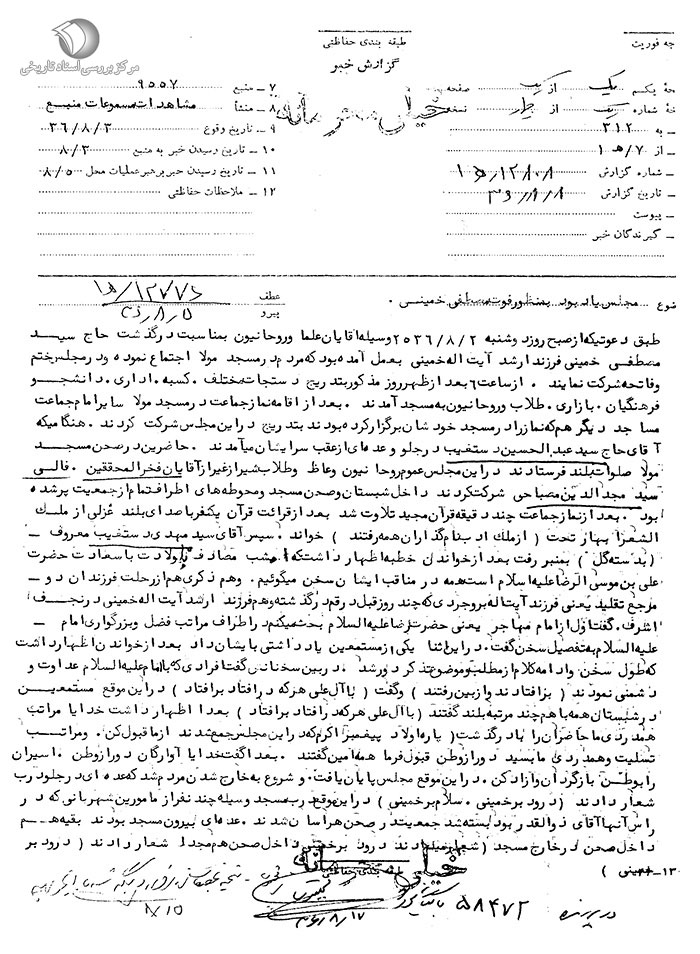 مرکز بررسی اسناد تاریخی
جه فوریت
طبقه بندی حفاظتی
گزارش خبر
خیلی محرمانه
حۀ یکم یک از یک صفحه
خۀ شماره از چهار نسخه
ـ به ۳۱۲
ـ از ۷/ﻫ ۱
ـ شماره گزارش
ـ تاریخ گزارش ۳۶/۸/۸
ـ پیوست
ـ گیرندگان خبر
۷ ـ منبع ۹۵۵۷
۸ ـ منشأ مشاهدات مسموعات منبع
۹ ـ تاریخ وقوع ۳۶/۸/۲
۱۰ ـ تاریخ رسیدن خبر به منبع ۸/۳
۱۱ ـ تاریخ رسیدن خبر برهبر عملیات محل ۸/۵
۱۲ ـ ملاحظات حفاظتی
نوع مجلس یادبود بمنظور فوت مصطفی خمینی .
عطف
پیرو
طبق دعوتیکه از صبح روز دوشنبه ۲۵۳۶/۸/۲ وسیله آقایان علما و روحانیون بمناسبت درگذشت حاج سید
مصطفی خمینی فرزند ارشد آیت اله خمینی بعمل آمده بود که مردم در مسجد مولا اجتماع نموده و در مجلس ختم
و فاتحه شرکت نمایند . از ساعت ۶ بعد از ظهر روز مذکور بتدریج دستجات مختلف . کسبه . اداری . دانشجو
فرهنگیان . بازاری . طلاب و روحانیون به مسجد آمدند . بعد از اقامه نماز جماعت در مسجد مولا سایر امام جماعت
مساجد دیگر هم که نماز را در مسجد خودشان برگزار کرده بودند بتدریج در این مجلس شرکت کردند . هنگامیکه
آقای حاج سید عبدالحسین دستغیب در جلو و عده ای از عقب سر ایشان میآمدند . حاضرین در صحن مسجد
مولا صلوات بلند فرستادند در این مجلس عموم روحانیون وعاظ و طلاب شیراز غیر از آقایان فخرالمحققین . فالی
سید مجدالدین مصباحی شرکت کردند داخل شبستان و صحن مسجد و محوطه های اطراف تمام از جمعیت پر شده
بود . بعد از نماز جماعت چند دقیقه قرآن مجید تلاوت شد بعد از قرائت قرآن یکنفر با صدای بلند غزلی از ملک
الشعرا بهار تحت ( از ملک ادب نام گذاران همه رفتند ) خواند . سپس آقای سید مهدی دستغیب معروف
( بدسته گل ) بمنبر رفت بعد از خواندن خطبه اظهار داشت که امشب مصادف با ولادت با سعادت حضرت
علی بن موسی الرضا علیه السلام است همه در مناقب ایشان سخن میگوئیم . و هم ذکری هم از رحلت فرزندان دو ـ
مرجع تقلید یعنی فرزند آیت اله بروجردی که چند روز قبل در قم درگذشته و هم فرزند ارشد آیت اله خمینی در نجف
اشرف . گفت اول از امام مهاجر یعنی حضرت رضا علیه السلام بحث میکنم در اطراف مراتب فضل و بزرگواری امام ـ
علیه السلام به تفصیل سخن گفت . در این اثنا یکی از مستمعین یادداشتی بایشان داد بعد از خواندن اظهار داشت
که طول سخن و ادامه کلام از مطلب و موضوع تذکر دور شد . در بین سخنانی گفت افرادی که با امام علیه السلام عداوت و
دشمنی نمودند ( برافتادند و از بین رفتند ) و گفت ( با آل علی هر که در افتاد بر افتاد ) در این موقع مستمعین
در شبستان همه با هم چند مرتبه بلند گفتند ( با آل علی هر که در افتاد بر افتاد ) بعد اظهار داشت خدایا مراتب
همدردی ما حاضران را بیاد درگذشت ( پاره اولاد پیغمبر اکرم که در این مجلس جمع شدند از ما قبول کن . و مراتب
تسلیت و همدردی ما بسید دور از وطن قبول فرما همه آمین گفتند . بعد گفت خدایا آوارگان دور از وطن . اسیران
را بوطن بازگردان و آزاد کن . در این موقع مجلس پایان یافت . و شروع به خارج شدن مردم شد که عده ای در جلو درب
شعار دادند ( درود بر خمینی . سلام بر خمینی ) در این موقع درب مسجد وسیله چند نفر از مامورین شهربانی که در
راس آنها آقای ذوالقدر بود بسته شد جمعیت در صحن هراسان شدند . عده ای بیرون مسجد بودند بقیه هم
داخل صحن در خارج مسجد ( شعار میدادند درود بر خمینی داخل صحن هم مجددا شعار دادند ( درود بر
خمینی )
۱۳ ـ
خیلی محرمانه
طبقه بندی حفاظتی
در پرونده ۵۸۴۷۲ بایگانی شود
۳۶/۸/۱۷
۸/۱۵